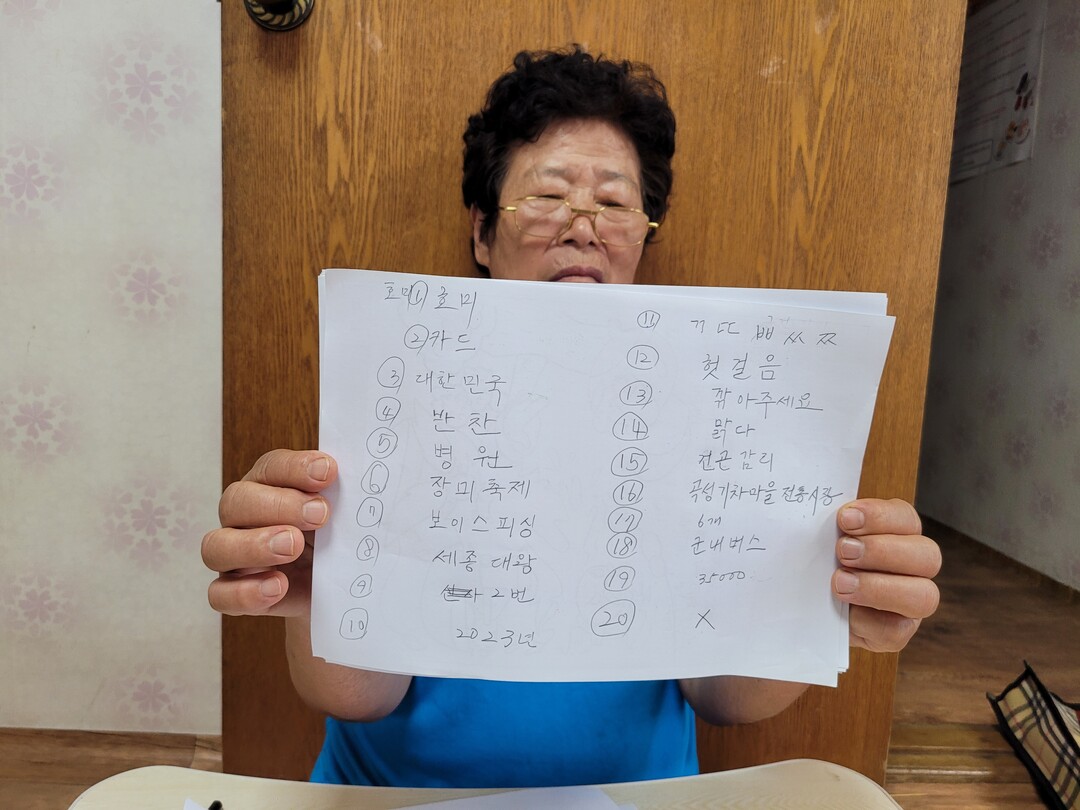 호미 ① 호미
② 카드
③ 대한민국
④ 반찬
⑤ 병원
⑥ 장미축제
⑦ 보이스피싱
⑧ 세종대왕
⑨ 2번
⑩ 2023년
⑪ ㄲ ㄸ ㅃ ㅆ ㅉ
⑫ 헛걸음
⑬ 깎아주세요
⑭ 맑다
⑮ 전근감리
⑯ 곡성기차마을전통시장
⑰ 6개
⑱ 군내버스
⑲ 35000.
⑳ X